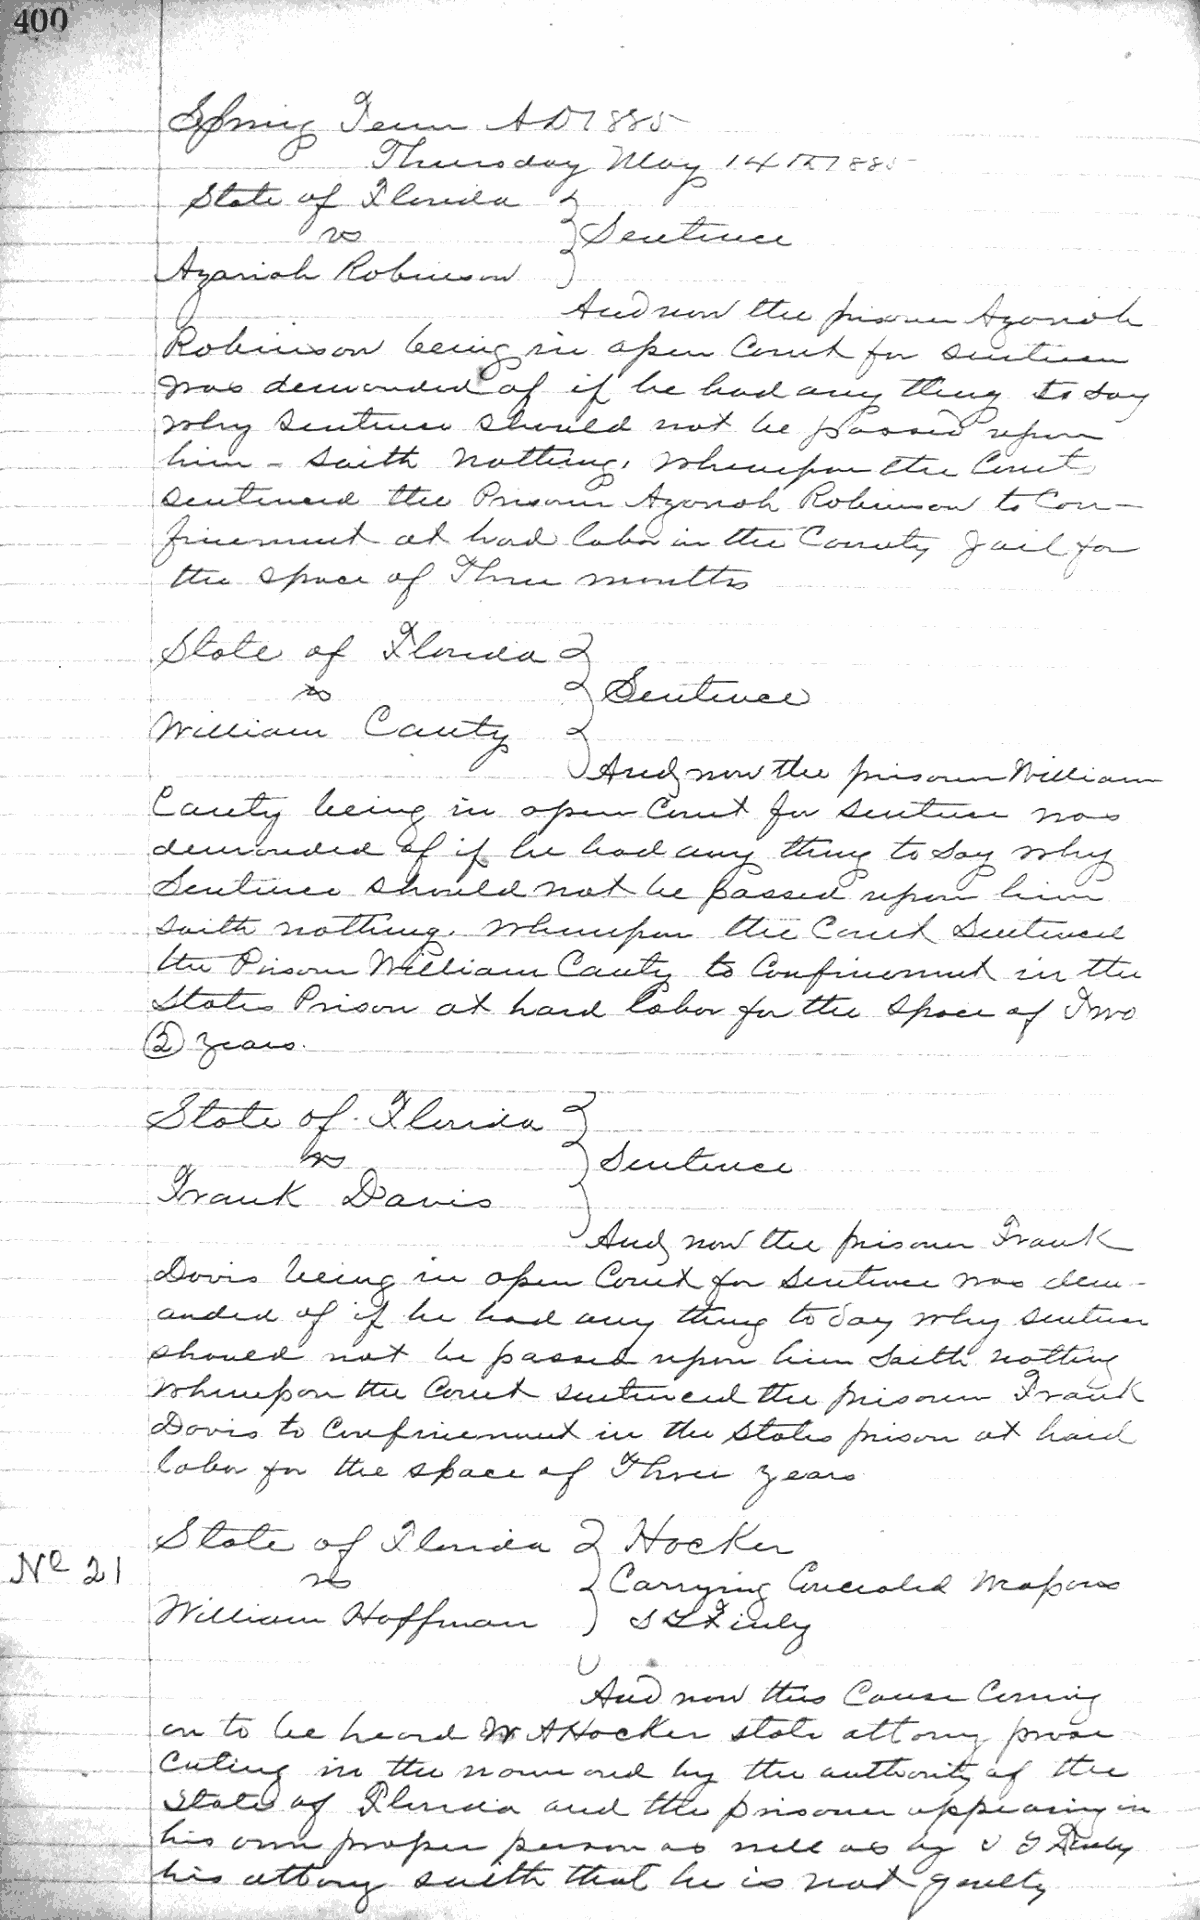 400
Spring Term AD 1885
Thursday May 14th 1885
State of Florida
vs
Sentence
Azariah Robinson
And now the prisoner Azariah
Robinson being in open Court for sentence
was demanded of if he had any thing to say
why sentence should not be passed upon
him - saith nothing. Whereupon the Court
sentenced the Prisoner Azariah Robinson to Con-
finement at hard labor in the County Jail for
the space of Three months
State of Florida
vs
Sentence
William Canty
And now the prisoner William
Canty being in open Court for sentence was
demanded of if he had any thing to say why
Sentence should not be passed upon him
saith nothing. Whereupon the Court Sentenced
the Prisoner William Canty to Confinement in the
States Prison at hard labor for the space of Two
(2) years.
State of Florida
vs
Sentence
Frank Davis
And now the prisoner Frank
Davis being in open Court for sentence was dem-
anded of if he had any thing to say why sentence
should not be passed upon him saith nothing
Whereupon the Court sentenced the prisoner Frank
Davis to Confinement in the States prison at hard
labor for the space of Three years
State of Florida Hocker
No 21
vs
Carrying Concealed Weapons
William Hoffman
And now this Cause Coming
on to be heard W A Hocker state attorny prose
cuting in the name and by the authority of the
State of Florida and the prisoner appearing in
his own proper person as well as by
his attorny saith that he is not guilty